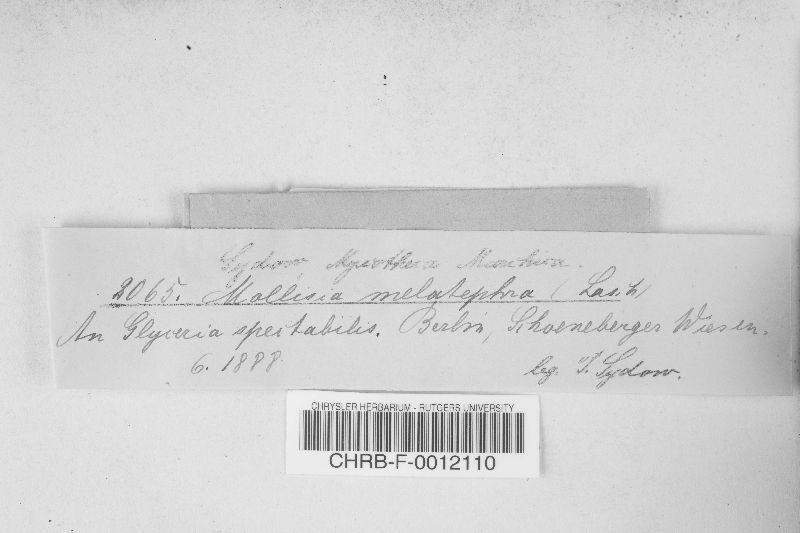 Sydow, Mycotheca Marchica.
2065. Mollisia melatephra (Lasch)
An Glyceria spectabilis. Berlin, Schoeneberger Wiesen.
6. 1888. leg. P. Sydow.
CHRYSLER HERBARIUM - RUTGERS UNIVERSITY
CHRB-F-0012110